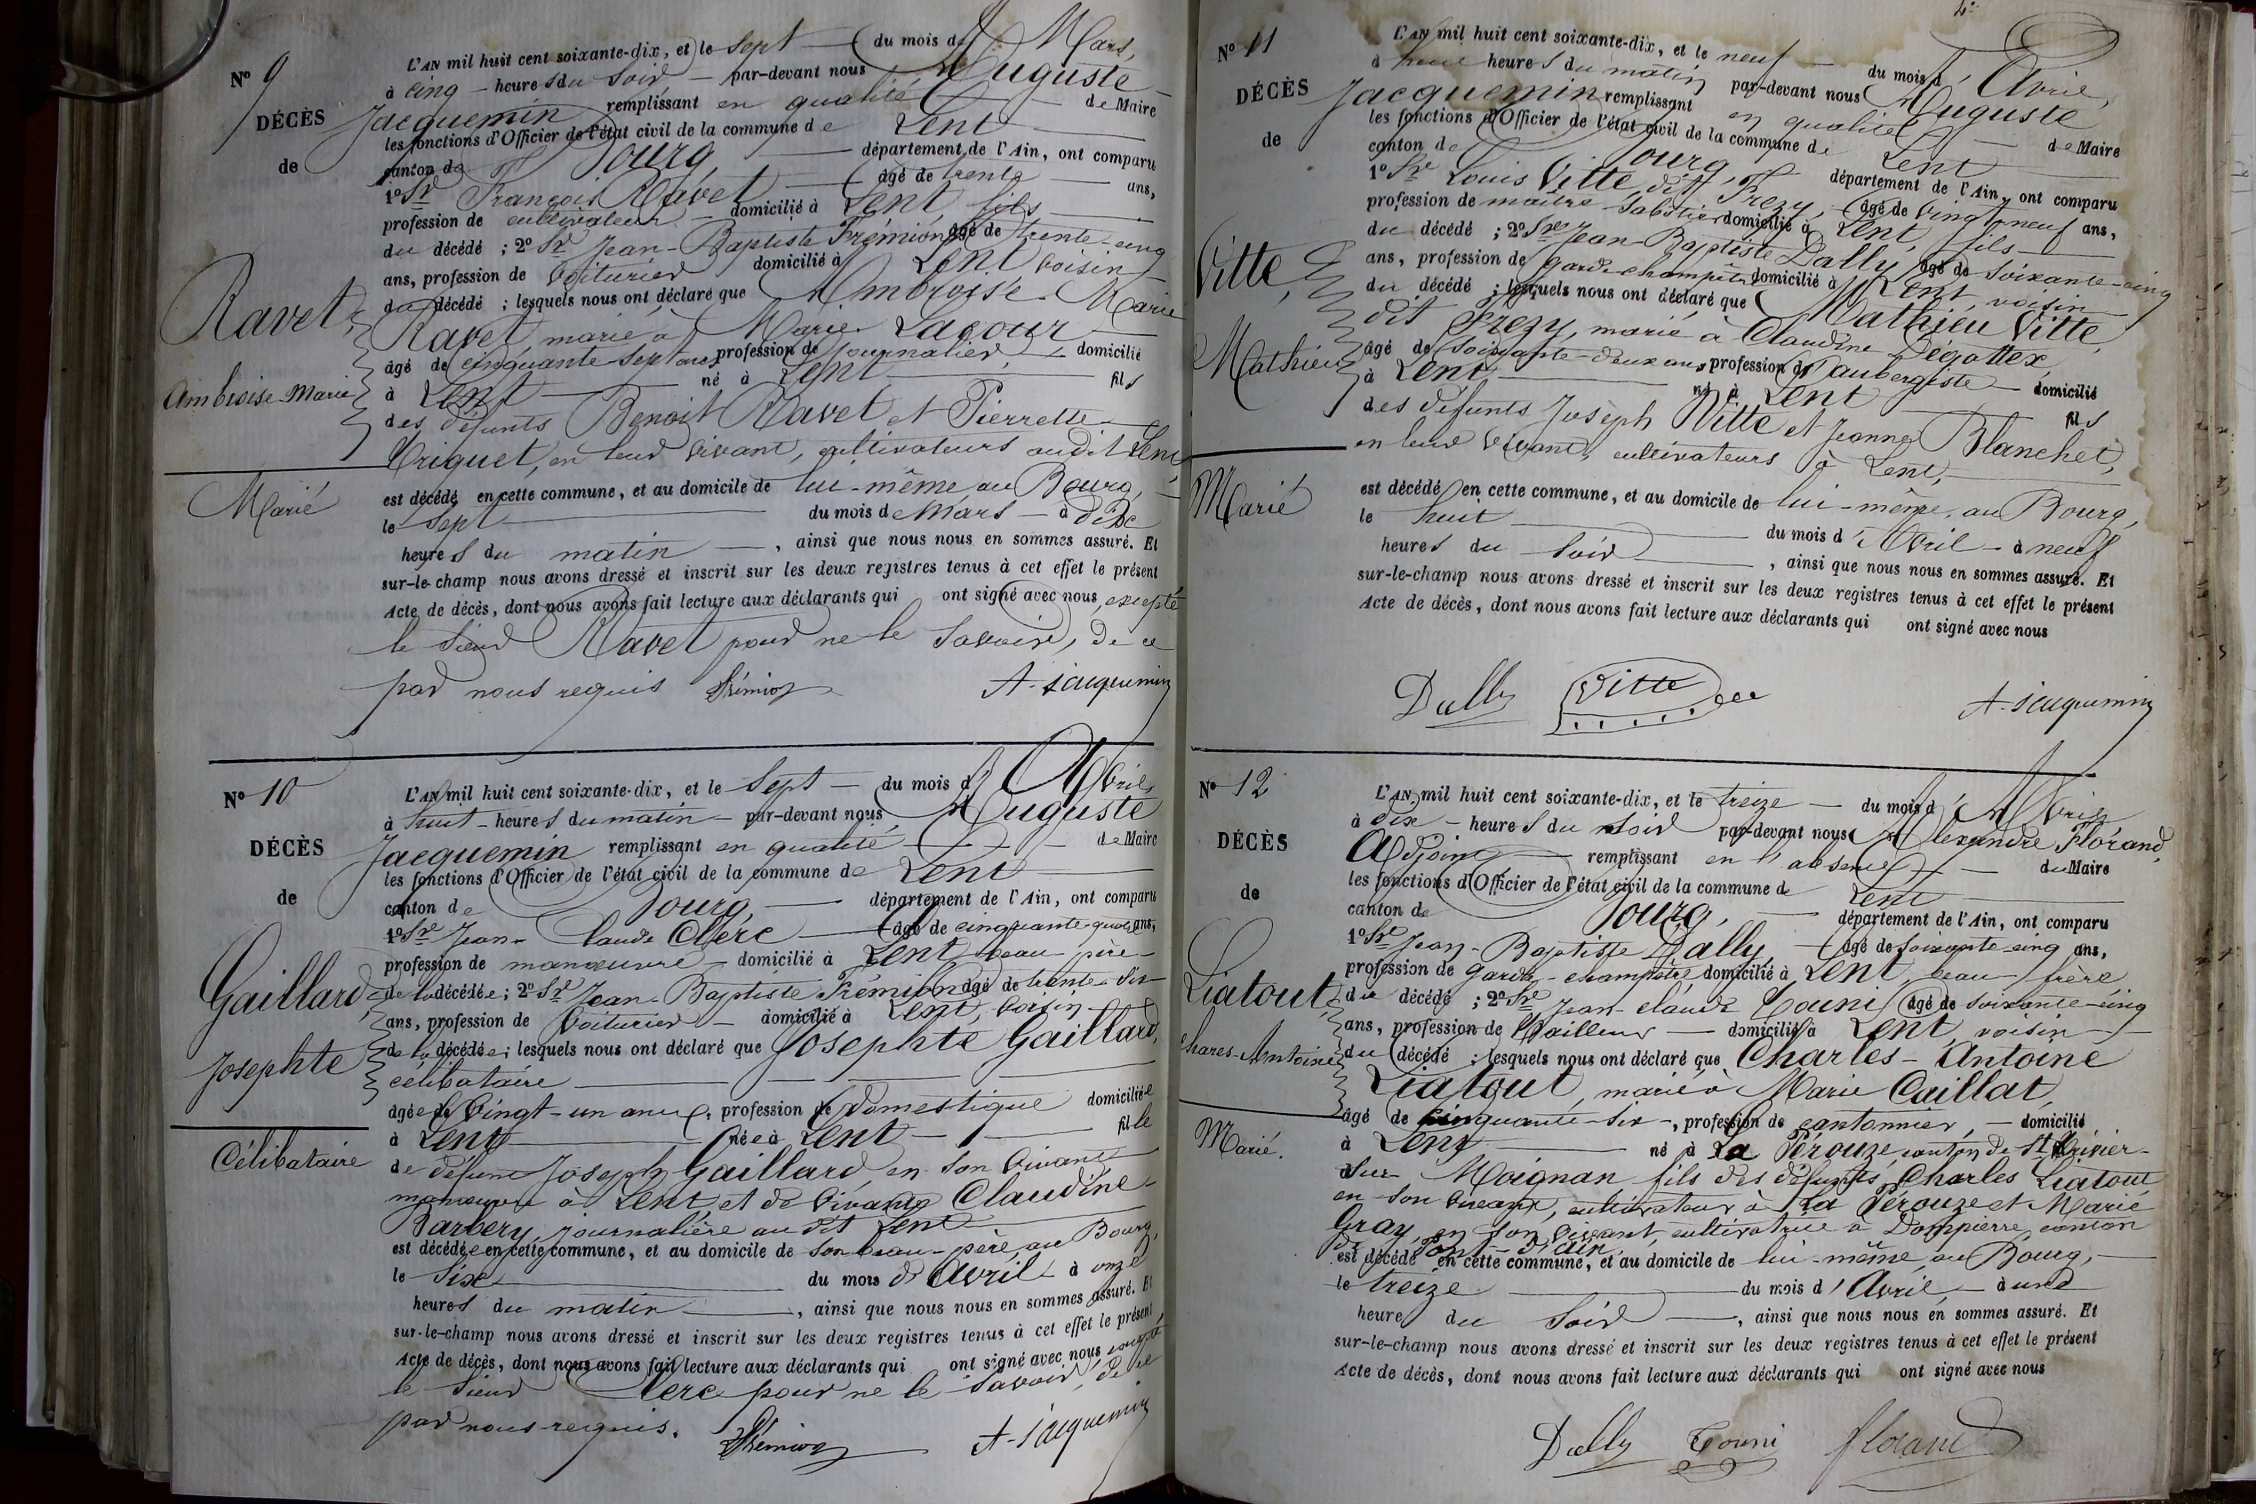 Nº 9
DÉCÈS
de
Ravet,
Ambroise-Marie
Marié
L'AN mil huit cent soixante-dix, et le sept du mois de Mars,
à cinq heures du soir par-devant nous Auguste
Jacquemin remplissant en qualité de Maire
les fonctions d'Officier de l'état civil de la commune de Lent
canton de Bourg, département de l'Ain, ont comparu
1º Sr François Ravet âgé de trente ans,
profession de cultivateur domicilié à Lent, fils
du décédé ; 2º Sr Jean-Baptiste Frémion âgé de trente-cinq
ans, profession de voiturier domicilié à Lent, voisin
du décédé ; lesquels nous ont déclaré que Ambroise-Marie
Ravet, marié à Marie Lacour
âgé de cinquante-sept ans, profession de journalier, domicilié
à Lent né à Lent fils
des défunts Benoit Ravet et Pierrette
Criquet, en leur vivant, cultivateurs audit Lent
est décédé en cette commune, et au domicile de lui-même au Bourg,
le sept du mois de Mars à dix
heures du matin, ainsi que nous nous en sommes assuré. Et
sur-le-champ nous avons dressé et inscrit sur les deux registres tenus à cet effet le présent
Acte de décès, dont nous avons fait lecture aux déclarants qui ont signé avec nous, excepté
le sieur Ravet pour ne le savoir, de ce
par nous requis Frémion A. Jacquemin
Nº 10
DÉCÈS
de
Gaillard,
Josephte
Célibataire
L'AN mil huit cent soixante-dix, et le sept du mois d'Avril,
à huit heures du matin par-devant nous Auguste
Jacquemin remplissant en qualité de Maire
les fonctions d'Officier de l'état civil de la commune de Lent
canton de Bourg, département de l'Ain, ont comparu
1º Sr Jean-Claude Clerc âgé de cinquante-quatre ans,
profession de manœuvre domicilié à Lent, beau-père
de la décédée ; 2º Sr Jean-Baptiste Frémion âgé de trente-six
ans, profession de voiturier domicilié à Lent, voisin
de la décédée ; lesquels nous ont déclaré que Josephte Gaillard,
célibataire
âgée de vingt-un ans, profession de domestique domiciliée
à Lent née à Lent fille
de défunt Joseph Gaillard, en son vivant
manœuvre à Lent, et de vivante Claudine
Barbery, journalière au dit Lent
est décédée en cette commune, et au domicile de son beau-père, au Bourg,
le six du mois d'Avril à onze
heures du matin, ainsi que nous nous en sommes assuré. Et
sur-le-champ nous avons dressé et inscrit sur les deux registres tenus à cet effet le présent
Acte de décès, dont nous avons fait lecture aux déclarants qui ont signé avec nous excepté
le sieur Clerc pour ne le savoir, de ce
par nous requis. Frémion A. Jacquemin
Nº 11
DÉCÈS
de
Vitte,
Mathieu
Marié
L'AN mil huit cent soixante-dix, et le neuf du mois d'Avril,
à heures du matin par-devant nous Auguste
Jacquemin remplissant en qualité de Maire
les fonctions d'Officier de l'état civil de la commune de Lent
canton de Bourg, département de l'Ain, ont comparu
1º Sr Louis Vitte dit Frezy, âgé de vingt-neuf ans,
profession de maître sabotier domicilié à Lent, fils
du décédé ; 2º Sr Jean-Baptiste Dally âgé de soixante-cinq
ans, profession de garde-champêtre domicilié à Lent, voisin
du décédé ; lesquels nous ont déclaré que Mathieu Vitte,
dit Frezy, marié à Claudine
âgé de soixante-deux ans, profession d'aubergiste domicilié
à Lent né à Lent fils
des défunts Joseph Vitte et Jeanne Blanchet,
en leur vivant, cultivateurs à Lent,
est décédé en cette commune, et au domicile de lui-même, au Bourg,
le huit du mois d'Avril à neuf
heures du soir, ainsi que nous nous en sommes assuré. Et
sur-le-champ nous avons dressé et inscrit sur les deux registres tenus à cet effet le présent
Acte de décès, dont nous avons fait lecture aux déclarants qui ont signé avec nous
Dally Vitte A. Jacquemin
Nº 12
DÉCÈS
de
Liatout,
Chares-Antoine
Marié.
L'AN mil huit cent soixante-dix, et le treize du mois d'Avril
à dix heures du soir par-devant nous Alexandre Florand,
Adjoint remplissant en l'absence du Maire
les fonctions d'Officier de l'état civil de la commune de Lent
canton de Bourg, département de l'Ain, ont comparu
1º Sr Jean-Baptiste Dally, âgé de soixante-cinq ans,
profession de garde-champêtre domicilié à Lent, beau-frère
du décédé ; 2º Sr Jean-Claude Couni âgé de soixante-cinq
ans, profession de tailleur domicilié à Lent, voisin
du décédé ; lesquels nous ont déclaré que Charles-Antoine
Liatout, marié à Marie Caillat,
âgé de cinquante-six, profession de cantonnier, domicilié
à Lent né à La Pérouze, canton de St Trivier-
sur-Moignan fils des défunts Charles Liatout
en son vivant, cultivateur à La Pérouze et Marie
Gray, en son vivant, cultivatrice à Dompierre, canton
de Pont-d'Ain
est décédé en cette commune, et au domicile de lui-même, au Bourg,
le treize du mois d'Avril, à une
heure du soir, ainsi que nous nous en sommes assuré. Et
sur-le-champ nous avons dressé et inscrit sur les deux registres tenus à cet effet le présent
Acte de décès, dont nous avons fait lecture aux déclarants qui ont signé avec nous
Dally Couni Florand